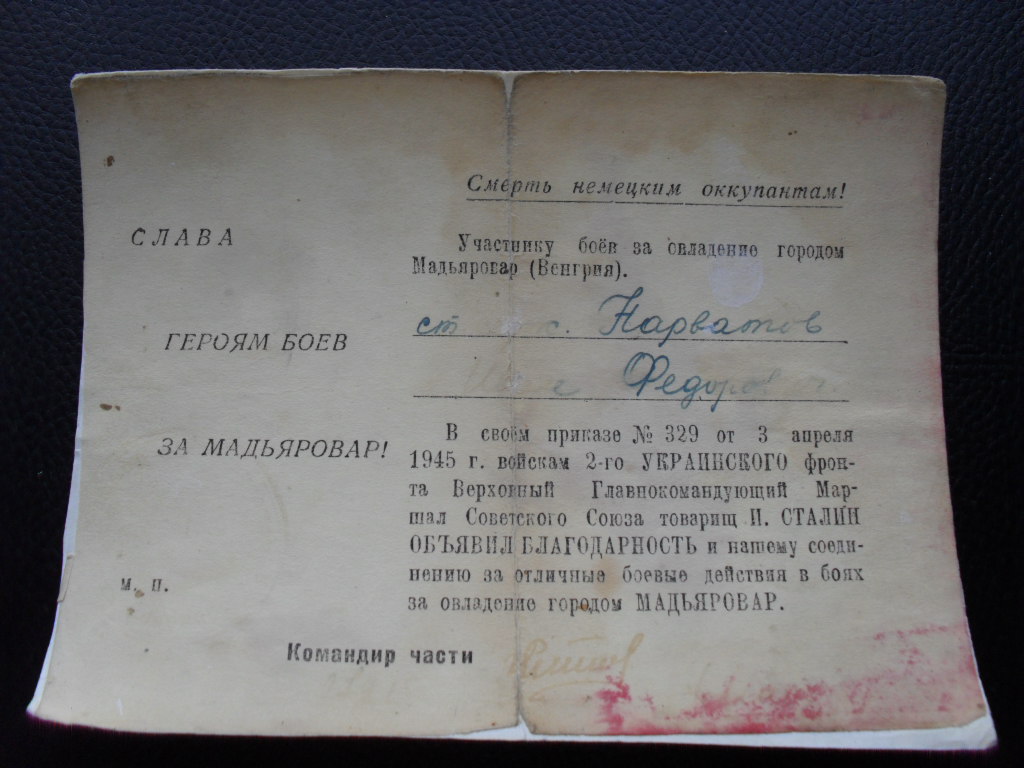 СЛАВА
ГЕРОЯМ БОЕВ
ЗА МАДЬЯРОВАР!
м. п.
Смерть немецким оккупантам!
Участнику боёв за овладение городом
Мадьяровар (Венгрия).
ст Нарватов
Федоров
В своём приказе № 329 от 3 апреля
1945 г. войскам 2-го УКРАИНСКОГО фрон-
та Верховный Главнокомандующий Мар-
шал Советского Союза товарищ И. СТАЛИН
ОБЪЯВИЛ БЛАГОДАРНОСТЬ и нашему соеди-
нению за отличные боевые действия в боях
за овладение городом МАДЬЯРОВАР.
Командир части